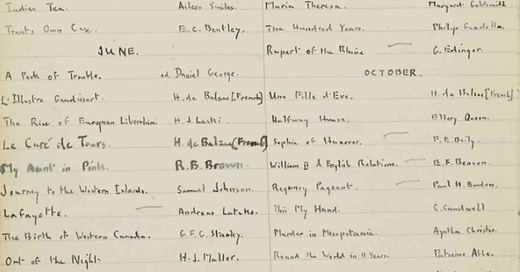 Indian Tea. Aileen Smiles.
Trents Own Case. E.C. Bentley.
JUNE.
A Peck of Trouble. ed Daniel George.
L'Illustre Gaudissart. H. de Balzac [French]
The Rise of European Liberalism H.J. Laski.
Le Curé de Tours. H de Balzac [French]
My Aunt in Pink. R.B. Brown.
Journey to the Western Islands. Samuel Johnson.
Lafayette. Andreas Latzko.
The Birth of Western Canada. G.F.G. Stanley.
Out of the Night. H.J. Muller.
Maria Theresa. Margaret Goldsmith
The Hundred Years. Philip Guedalla.
Rupert of the Rhine G. Edinger.
OCTOBER.
Une Fille d'Eve. H. de Balzac [French]
Halfway House. Ellery Queen.
Sophie of Hanover. F.E. Baily.
William II & English Relations. E.F. Benson.
Regency Pageant. Paul H. Emden.
This My Hand. C. Caudwell.
Murder in Mesopotamia. Agatha Christie.
Round the World in 11 Years. Patience Abbe.